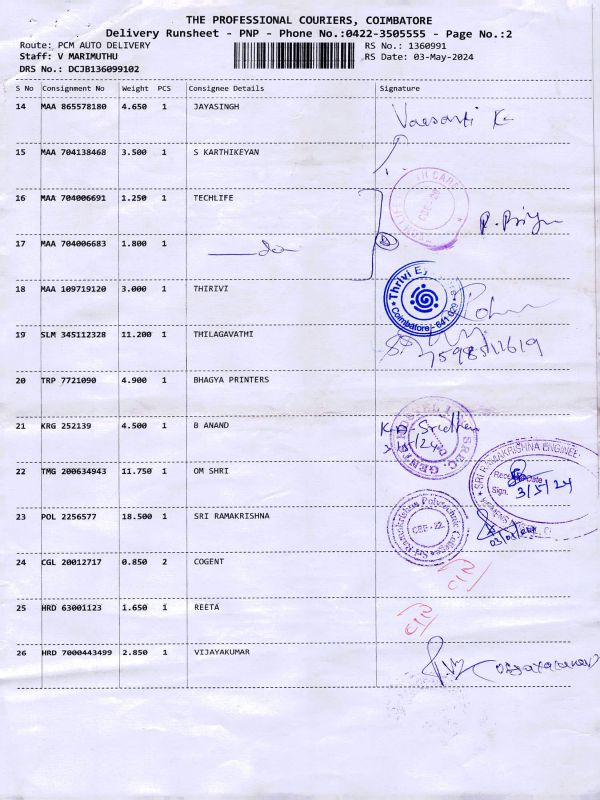 THE PROFESSIONAL COURIERS, COIMBATORE
Delivery Runsheet - PNP - Phone No.:0422-3505555 - Page No.:2
Route: PCM AUTO DELIVERY RS No.: 1360991
Staff: V MARIMUTHU RS Date: 03-May-2024
DRS No.: DCJB136099102
S No Consignment No Weight PCS Consignee Details Signature
14 MAA 865578180 4.650 1 JAYASINGH
15 MAA 704138468 3.500 1 S KARTHIKEYAN
16 MAA 704006691 1.250 1 TECHLIFE
17 MAA 704006683 1.800 1
18 MAA 109719120 3.000 1 THIRIVI
Thrivi Eye
Coimbatore - 641 029
19 SLM 345112328 11.200 1 THILAGAVATHI
20 TRP 7721090 4.900 1 BHAGYA PRINTERS
21 KRG 252139 4.500 1 B ANAND
22 TMG 200634943 11.750 1 OM SHRI
SRI RAMAKRISHNA ENGINEE
Date
Sign. 3/5/24
23 POL 2256577 18.500 1 SRI RAMAKRISHNA
Sri Ramakrishna Polytechnic College
CBE-22
24 CGL 20012717 0.850 2 COGENT
25 HRD 63001123 1.650 1 REETA
26 HRD 7000443499 2.850 1 VIJAYAKUMAR